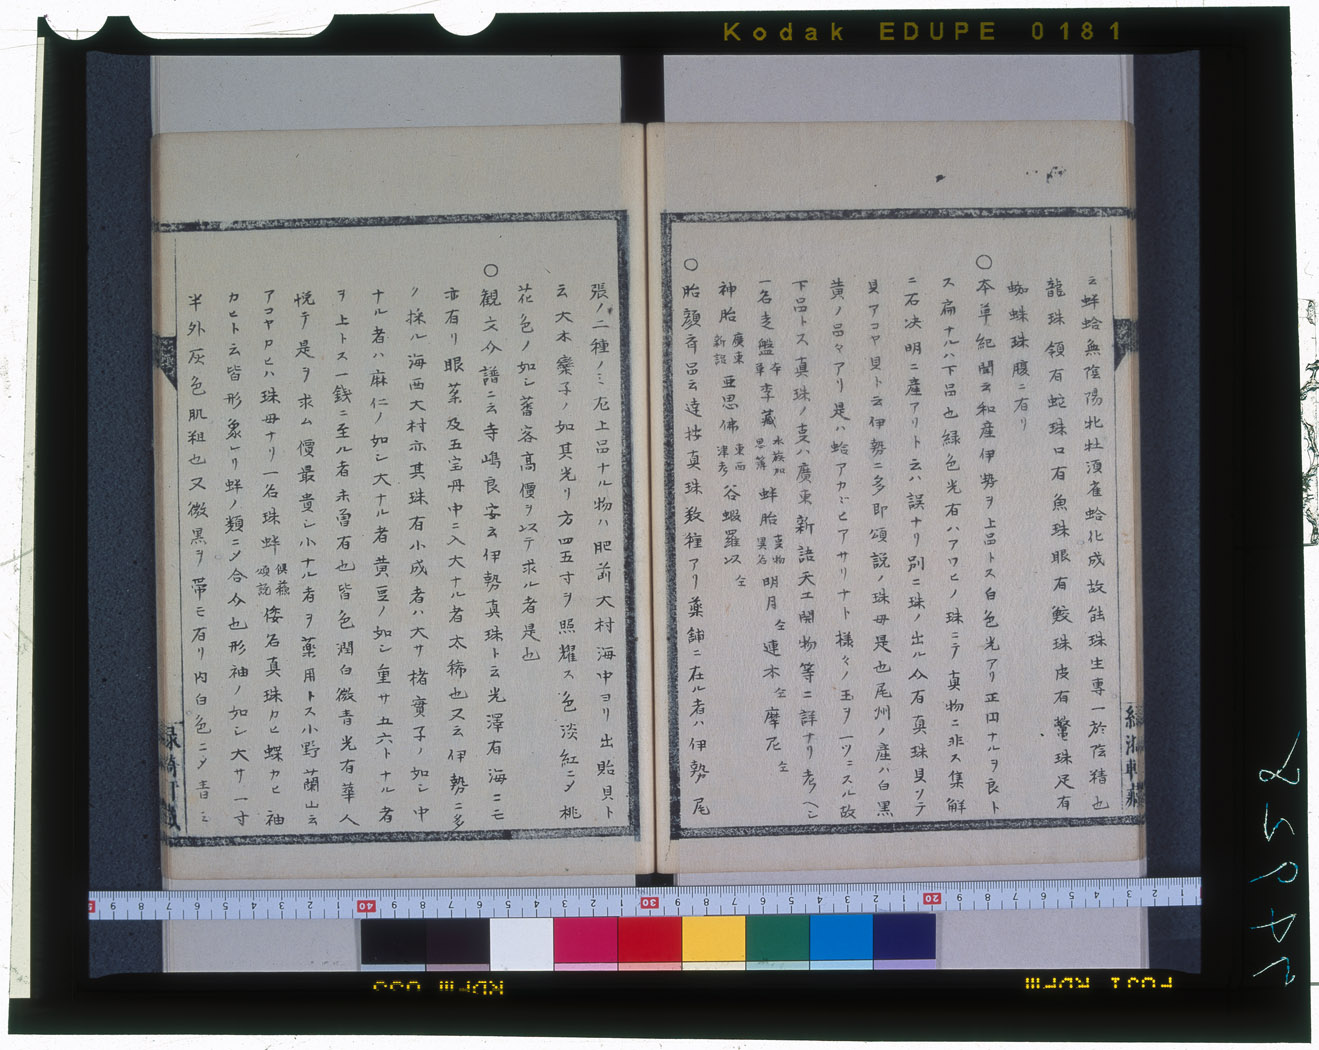 Kodak EDUPE 0181
云蚌蛤無陰陽牝牡須雀蛤化成故能珠生専一於陰精也
龍珠頷有蛇珠口有魚珠眼有鮫珠皮有鼈珠足有
蜘蛛珠腹ニ有リ
○本草紀聞云和産伊勢ヲ上品トス白色光アリ正円ナルヲ良ト
ス扁ナルハ下品也緑色光有ハアワヒノ珠ニテ真物ニ非ス集解
ニ石决明ニ産アリト云ハ誤ナリ別ニ珠ノ出ル石真珠貝ソテ
貝アコヤ貝ト云伊勢ニ多即頌説ノ珠母是也尾州ノ産ハ白黒
黄ノ品々アリ是ハ蛤アカヾヒアサリナト様々ノ玉ヲ一ツニスル故
下品トス真珠ノ叓ハ廣東新語天工開物等ニ詳ナリ考ヘシ
一名走盤 本草 李藏 水族加恩簿 蚌胎 事物異名 明月 仝 連本 仝 摩尼 仝
神胎 廣東新語 亜思佛 東西洋考 谷蝦羅以 仝
○胎顔弇品云達按真珠数種アリ薬舗ニ在ル者ハ伊勢尾
張ノ二種ノミ尤上品ナル物ハ肥前大村海中ヨリ出貽貝ト
云大木欒子ノ如其光リ方四五寸ヲ照耀ス色淡紅ニメ桃
花色ノ如シ蕃客高價ヲ以テ求ル者是也
○観文介譜ニ云寺嶋良安云伊勢真珠ト云光澤有海ニモ
亦有リ眼薬及五宝丹中ニ入大ナル者太稀也又云伊勢ニ多
ノ採ル海西大村亦其珠有小成者ハ大サ楮實子ノ如シ中
ナル者ハ麻仁ノ如シ大ナル者黄豆ノ如シ重サ五六トナル者
ヲ上トス一銭ニ至ル者未曽有也皆色潤白微青光有華人
悦テ是ヲ求ム價最貴シ小ナル者ヲ薬用トス小野蘭山云
アコヤカヒハ珠母ナリ一名珠蚌 倶蘓頌説 倭名真珠カヒ蝶カヒ袖
カヒト云皆形象レリ蚌ノ類ニメ合介也形袖ノ如シ大サ一寸
半外灰色肌粗也又微黒ヲ帯モ有リ内白色ニメ青ミ